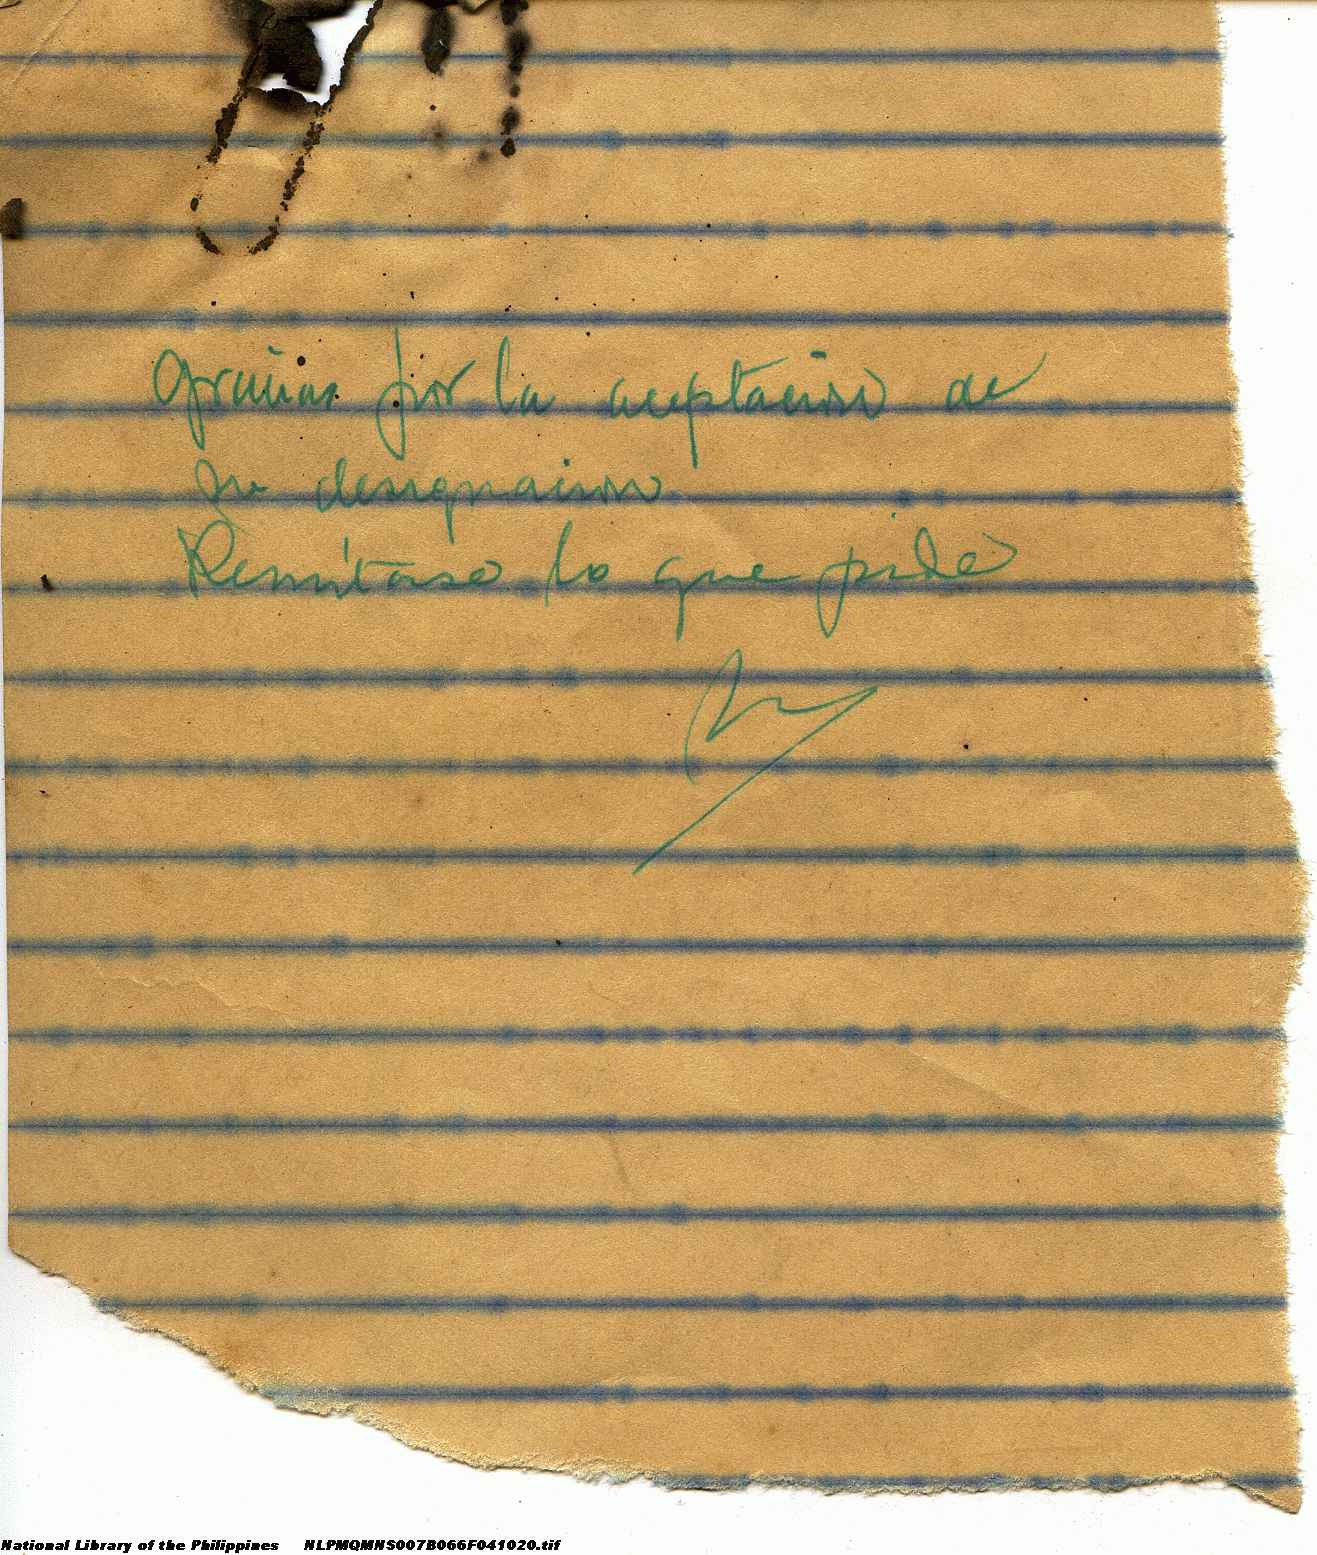 Gracias por la aceptacion de
su designacion
Remitase lo que pide
National Library of the Philippines NLPMQMNS007B066F041020.tif